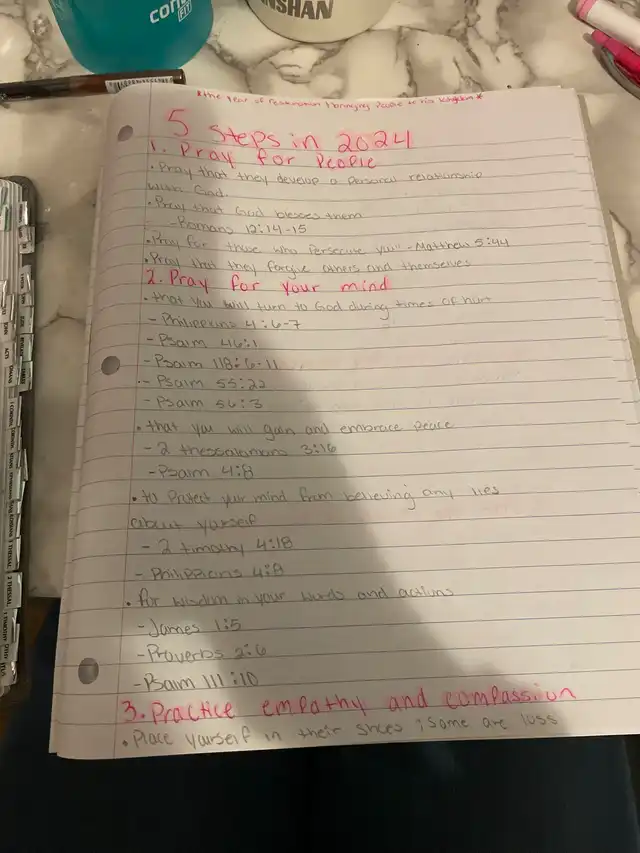 CON
FIT
NSHAN
*The Year of restoration & bringing People to his Kingdom*
5 Steps in 2024
1. Pray for People
• Pray that they develop a personal relationship
with God.
• Pray that God blesses them
- Romans 12:14-15
• Pray for those who persecute you" - Matthew 5:44
• Pray that they forgive others and themselves
2. Pray for your mind
• that you will turn to God during times of hurt
- Philippians 4:6-7
- Psalm 46:1
- Psalm 118:6-11
- Psalm 55:22
- Psalm 56:3
• that you will gain and embrace peace
- 2 thessalonians 3:16
- Psalm 4:8
• to Protect your mind from believing any lies
about yourself
- 2 timothy 4:18
- Philippians 4:8
• for wisdom in your words and actions
- James 1:5
- Proverbs 2:6
- Psalm 111:10
3. Practice empathy and compassion
• Place yourself in their shoes; some are loss